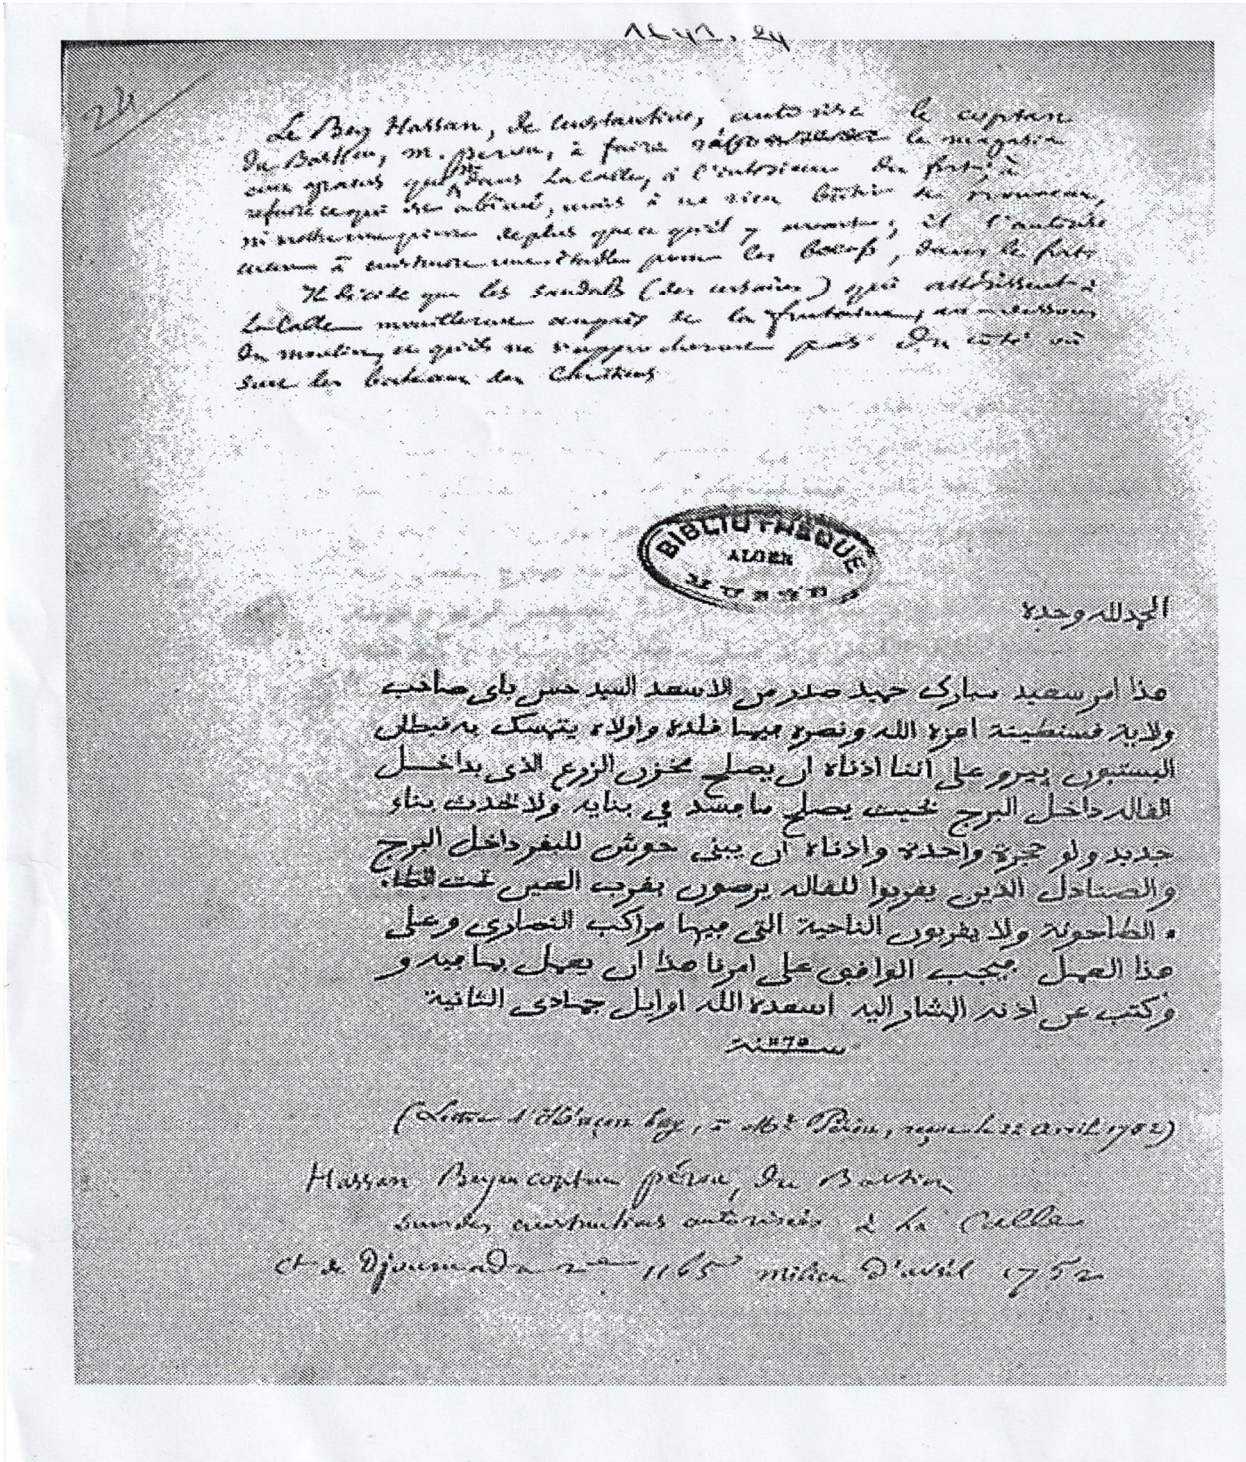 1641. 24
24
Le Bey Hassan, de Constantine, autorise le captan
du Bastion, m. perou, à faire le magasin
aux grains qui est dans La Calle, à l'intérieur du fort; à
refaire ce qui est abîmé, mais à ne rien bâtir de nouveau,
ni mettre une pierre de plus que ce qu'il y avait; il l'autorise
à construire une étable pour les bœufs, dans le fort
Il décide que les sandals (des corsaires) qui
La Calle mouilleront auprès de la fontaine, au-dessous
du moulin, et qu'ils ne s'approcheront pas du côté où
sont les bateaux des Chrétiens
BIBLIOTHÈQUE
ALGER
MUSÉE
الحمد لله وحده
هذا امر سعيد مبارك حميد صدر من الاسعد السيد حسن باي صاحب
ولاية قسنطينة اعزه الله ونصره فيها قلده واولاه يتمسك به قبطان
البستيون بيرو على اننا اذناه ان يصلح مخزن الزرع الذي بداخل
القاله داخل البرج بحيث يصلح ما فسد في بنايه ولا يحدث بناء
جديد ولو حجرة واحدة واذناه ان يبني حوش للبقر داخل البرج
والصنادل الذين يقربوا للقاله يرصون بقرب العين تحت
الطاحونة ولا يقربون الناحية التي فيها مراكب النصارى وعلى
هذا العمل فيجب الواقف على امرنا هذا ان يعمل بما فيه و
وكتب عن اذنه المشار اليه اسعده الله اوايل جمادى الثانية
سنة
(Lettre d'Haçan bey, à Mr Perou, reçue le 22 avril 1752)
Hassan Bey au captan pérou, du Bastion
sur des constructions autorisées à La Calle
Ct de Djoumada 2me 1165 milieu d'avril 1752